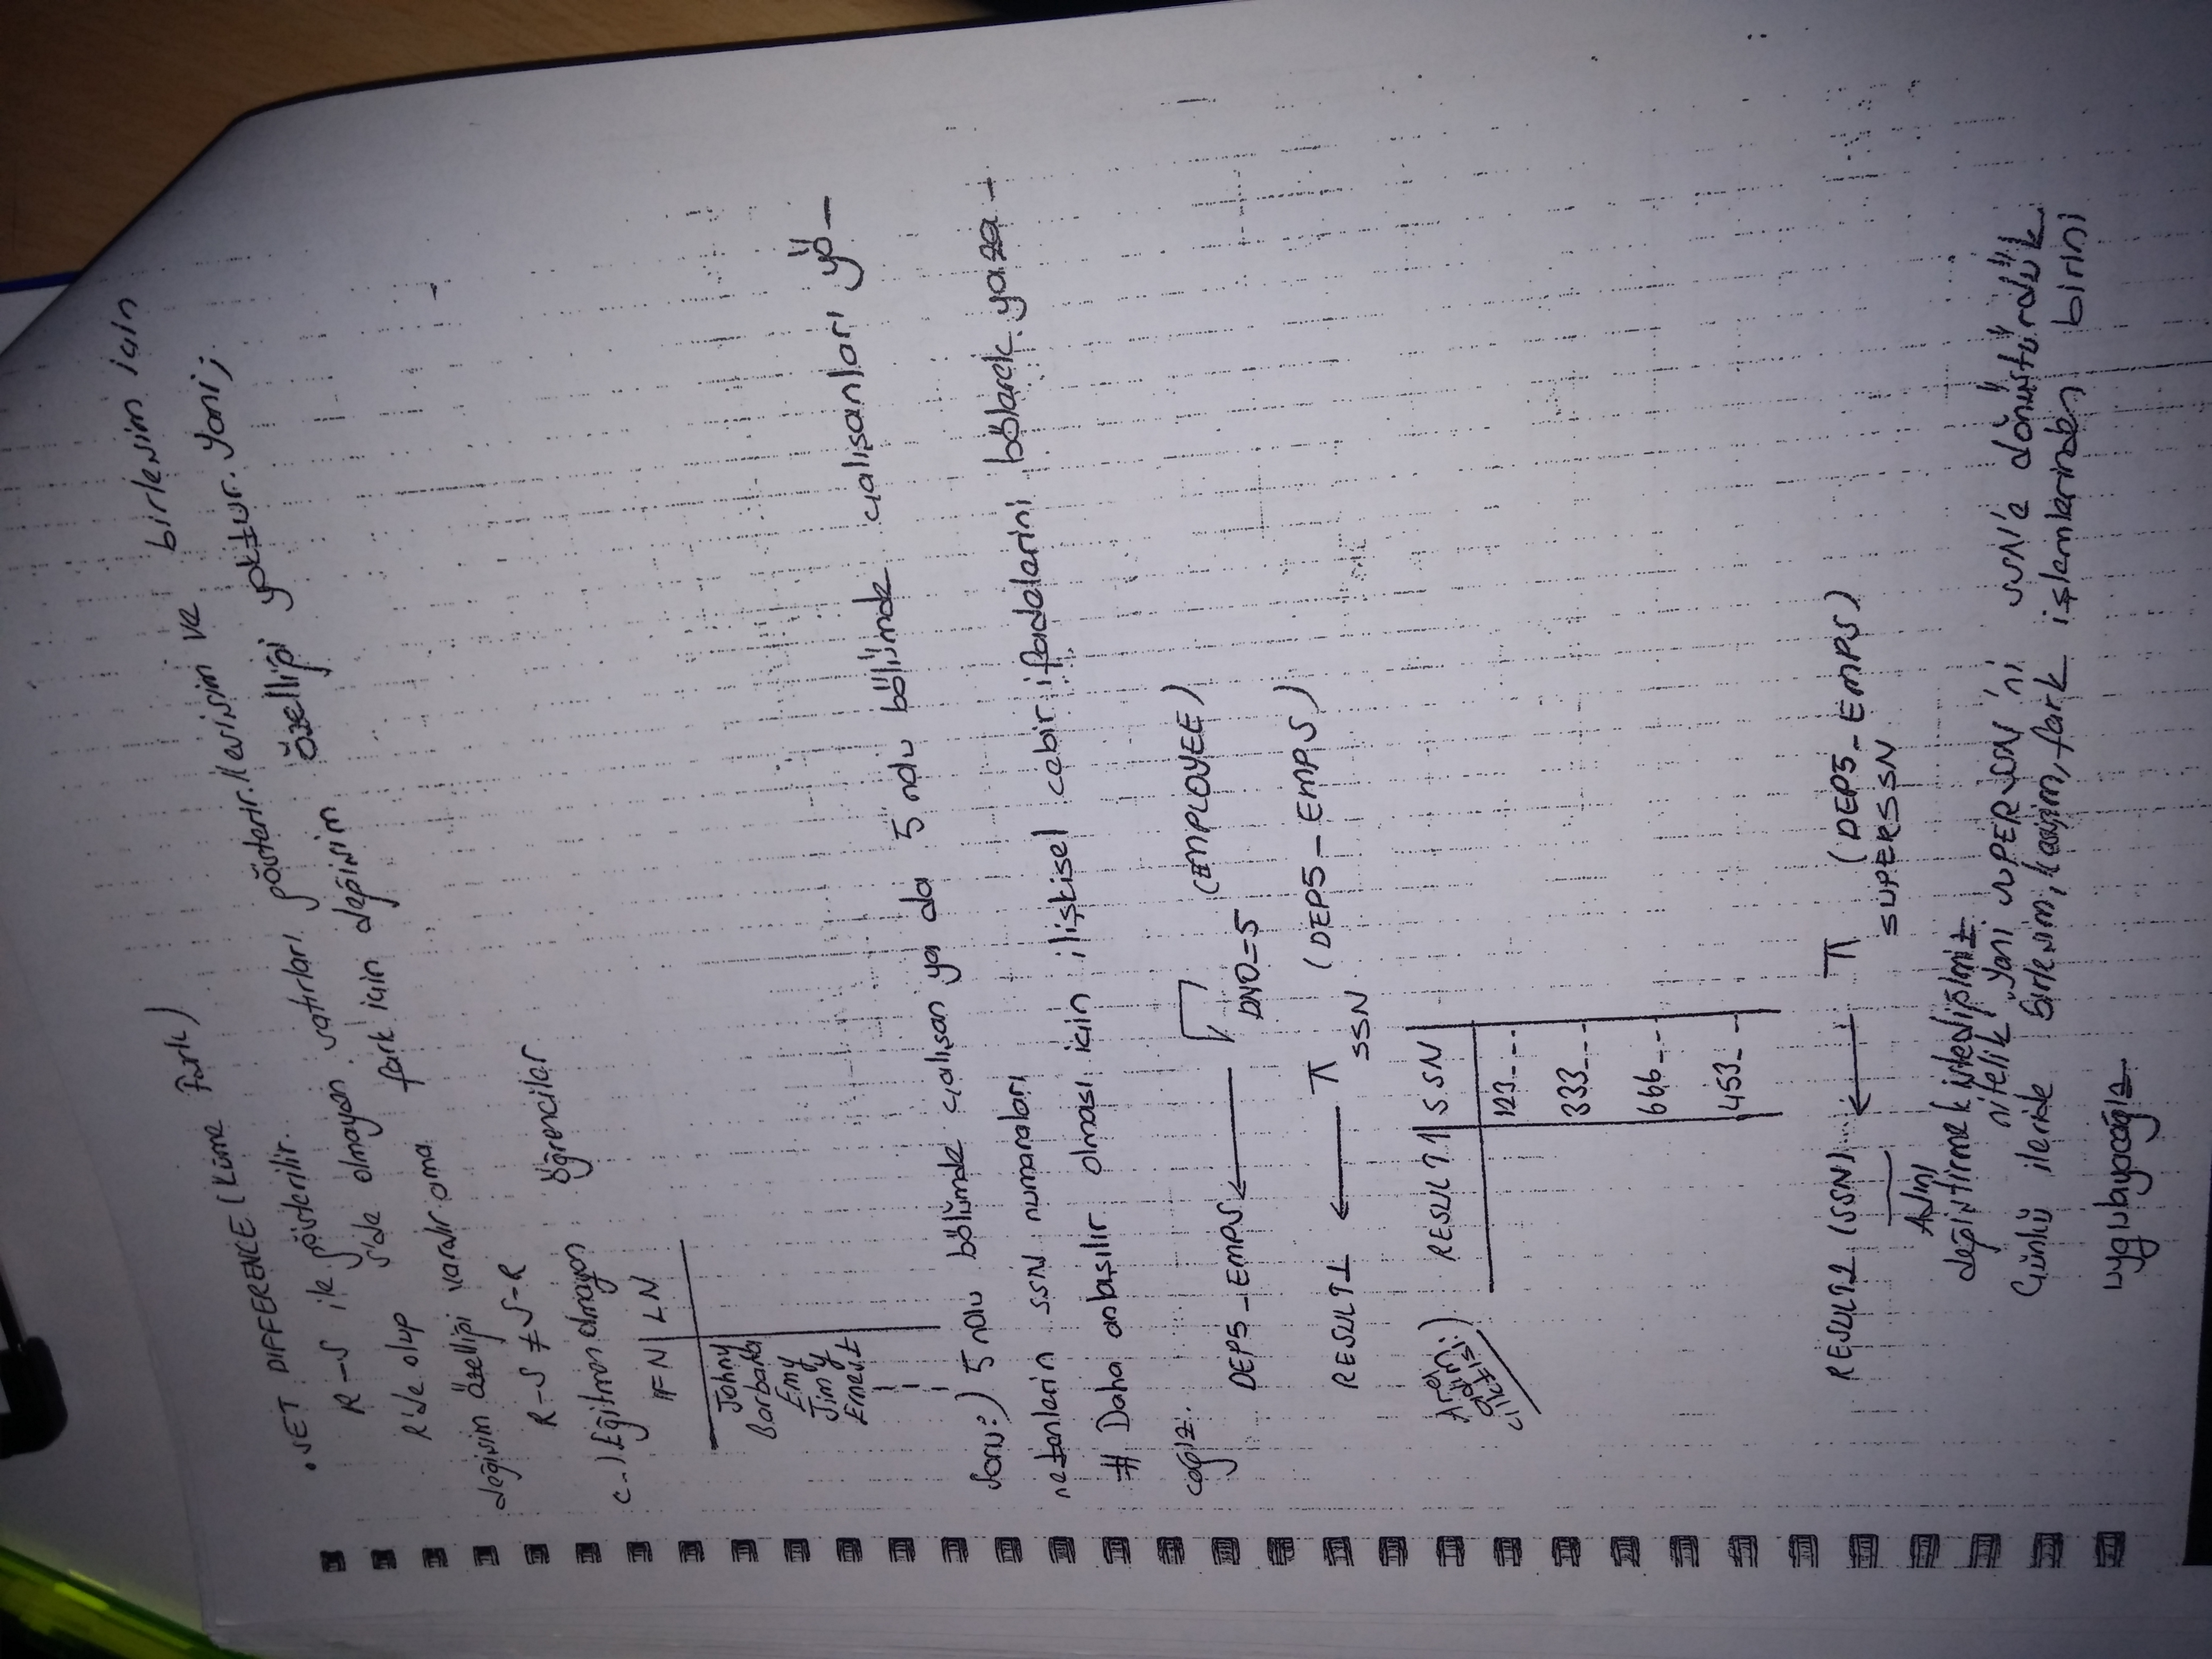 . SET DIFFERENCE (Küme Fark)
R-S ile gösterilir.
R'de olup S'de olmayan satırları gösterir. Kesişim ve birleşim için
değişim özelliği vardır ama fark için değişim özelliği yoktur. Yani;
R-S ≠ S-R
c-) Eğitmen olmayan öğrenciler
FN | LN
Johny
Barbara
Emy
Jimy
Ernest
Soru:) 5 nolu bölümde çalışan ya da 5 nolu bölümde çalışanları yö-
netenlerin SSN numaraları
# Daha anlaşılır olması için ilişkisel cebir ifadelerini bölerek yaza-
cağız.
DEP5_EMPS ← σ DNO=5 (EMPLOYEE)
RESULT1 ← π SSN (DEP5_EMPS)
Ara adım çıktısı:)
RESULT1 | SSN
123---
333---
666---
453---
RESULT2 (SSN) ← π SUPERSSN (DEP5_EMPS)
Adını
değiştirmek istediğimiz
nitelik. Yani SUPERSSN'ni SSN'e dönüştürdük
Çünkü ileride birleşim, kesişim, fark işlemlerinden birini
uygulayacağız